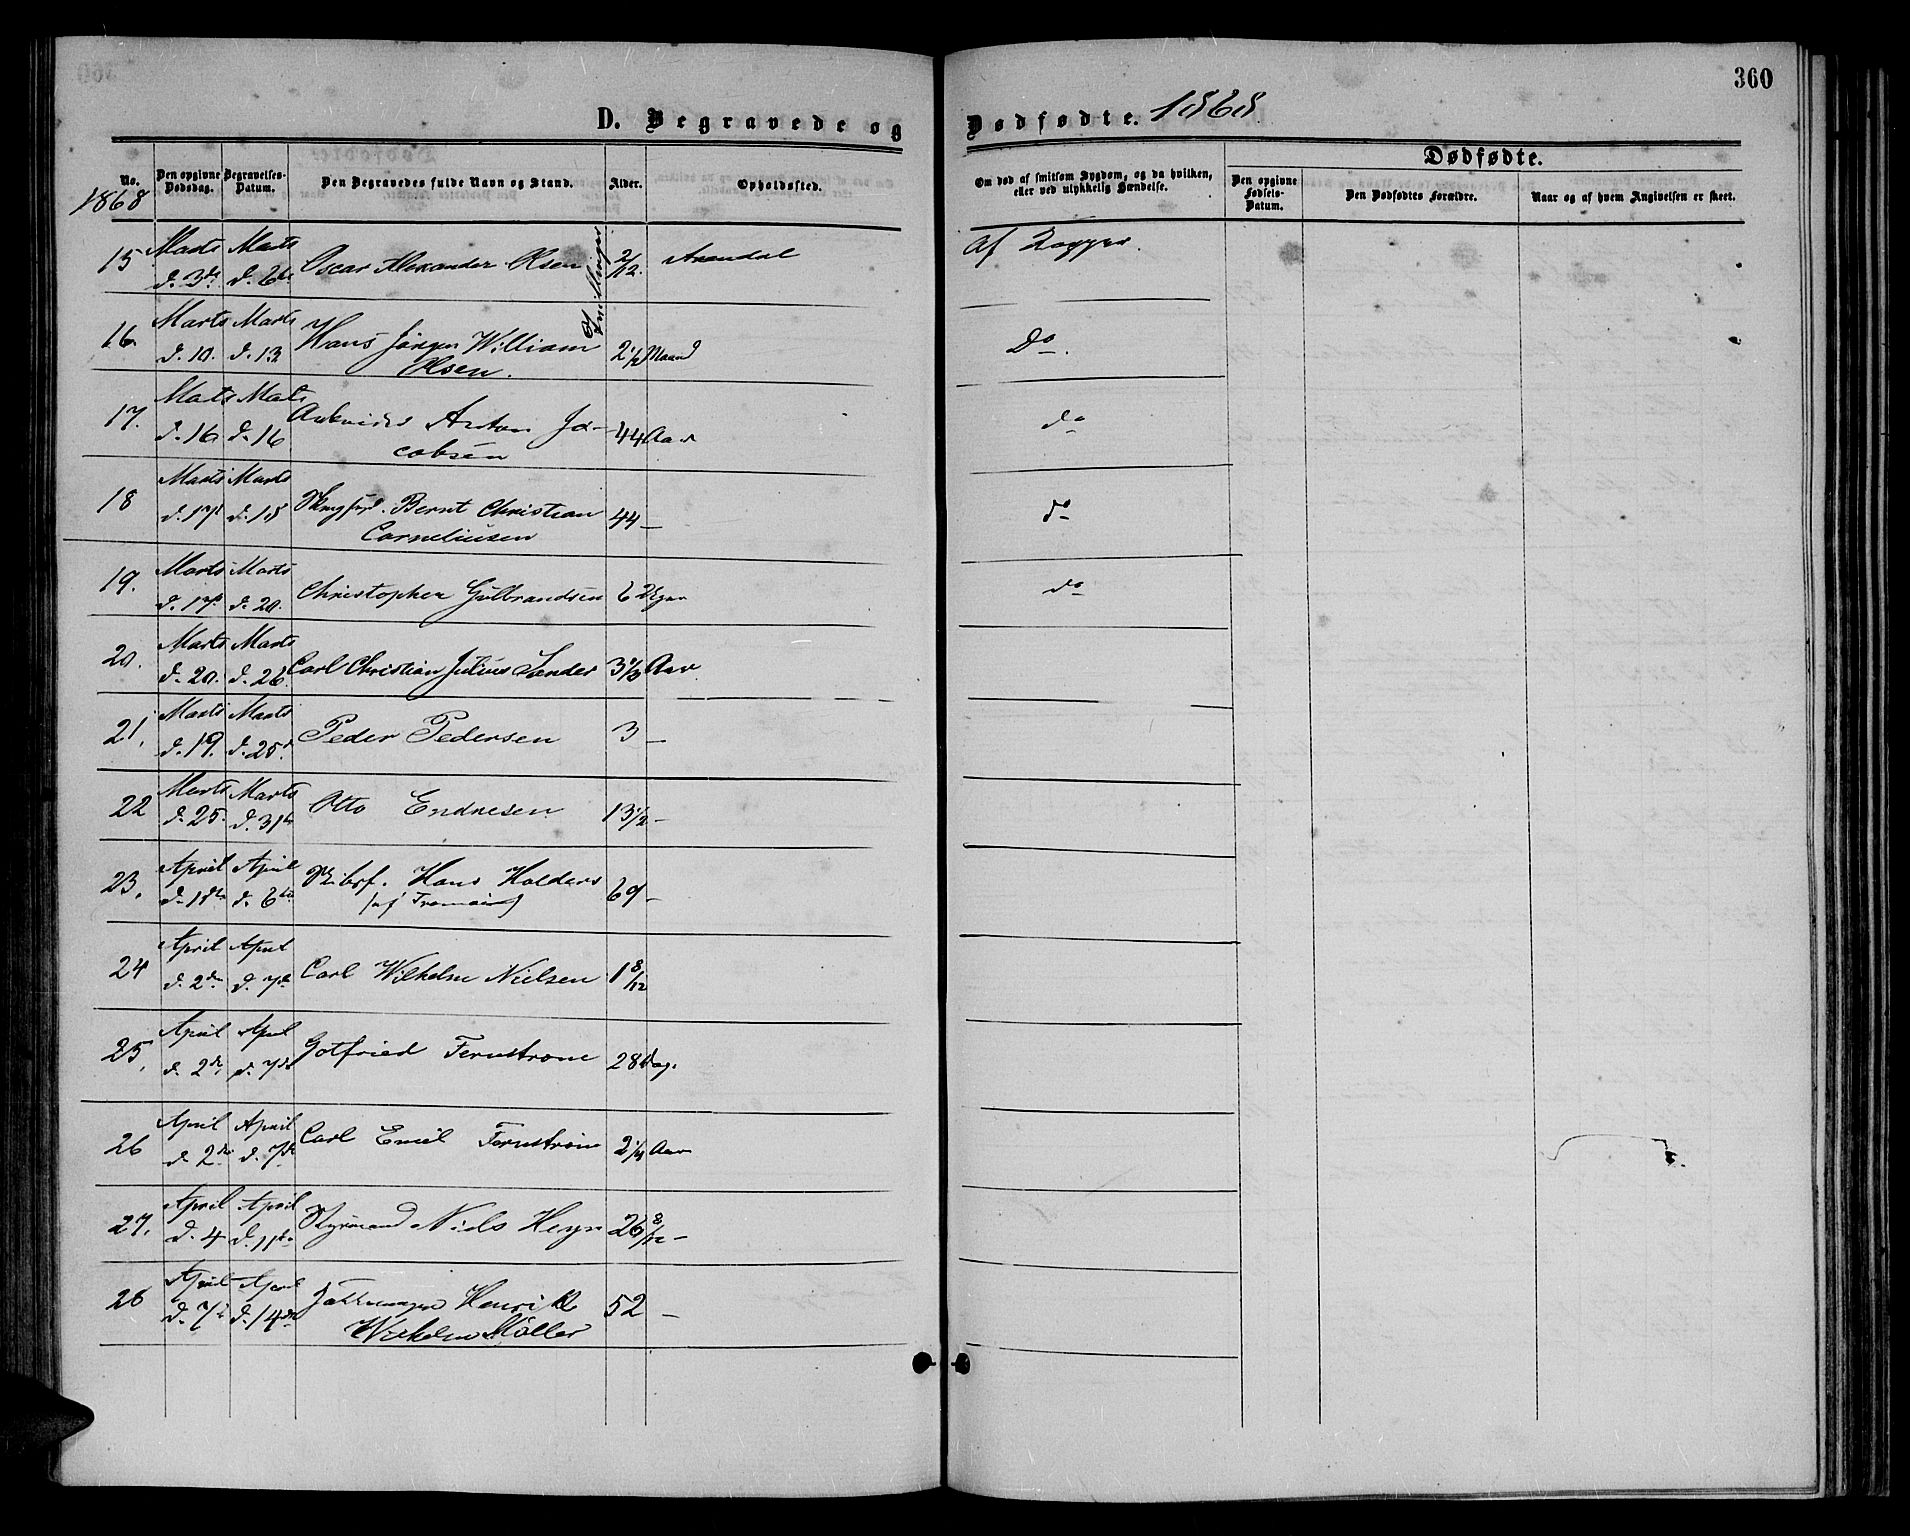 360
D. Begravede og Dødfødte. 1868
No.
Den opgivne Dødsdag.
Begravelses-Datum.
Den Begravedes fulde Navn og Stand.
Alder.
Opholdssted.
Om død af smitsom Sygdom, og da hvilken,
eller ved ulykkelig Hændelse.
Dødfødte.
Den opgivne Fødsels-Datum.
Den Dødfødtes Forældre.
Naar og af hvem Angivelsen er skeet.
1868
15 Marts d. 3de Marts d. 6te Oscar Alexander Olsen 2/12 Arendal
Tvillinger
16. Marts d. 10. Marts d. 13 Hans Jørgen William 2 1/2 Maand Do.
Olsen.
17. Marts d. 16 Marts d. 16 Anton Ja- 44 Aar do
cobsen
18 Marts d. 17 Marts d. 18 Bernt Christian 44 – do
Corneliusen
19. Marts d. 17 Marts d. 20. Christopher Gulbrandsen 6 do
20. Marts d. 20. Marts d. 26. Carl Christian Julius Sander 3 1/2 Aar
21. Marts d. 19. Marts d. 25 Peder Pedersen 3 –
22 Marts d. 25. Marts d. 31te Otto Endresen 13 1/2 –
23. April d. 1ste April d. 6te Skibsf. Hans Holders 69 –
24 April d. 2den April d. 7de Carl Wilhelm Nielsen 1 8/12
25, April d. 2den April d. 7de Gotfried Fernstrøm 28 Dag.
26 April d. 2den April d. 7de Carl Emil Fernstrøm 2 Aar
27. April d. 4 April d. 11te Styrmand Niels Heyn 26 8/12 –
28 April d. 7de April d. 14de Henrik 52 –
Wilhelm Møller